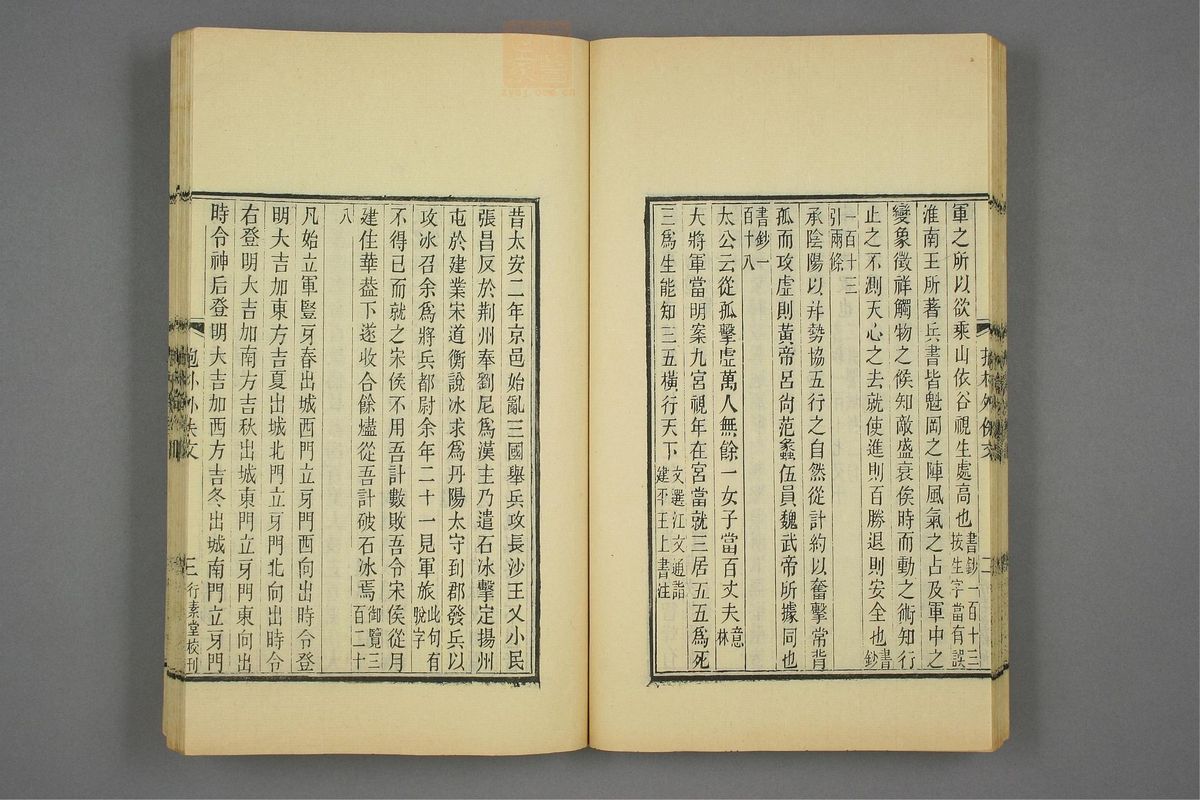 軍之所以欲乘山依谷視生處高也書鈔一百十三按生字當有誤
淮南王所著兵書皆魁岡之陣風氣之占及軍中之
變象徵祥觸物之候知敵盛衰俟時而動之術知行
止之不測天心之去就使進則百勝退則安全也書鈔
一百十三引兩條
承陰陽以幷勢協五行之自然從計約以奮擊常背
孤而攻虛則黃帝呂尙范蠡伍員魏武帝所據同也
書鈔一百十八
太公云從孤擊虛萬人無餘一女子當百丈夫意林
大將軍當明案九宮視年在宮當就三居五五爲死
三爲生能知三五橫行天下文選江文通詣建平王上書注
二
昔太安二年京邑始亂三國舉兵攻長沙王乂小民
張昌反於荆州奉劉尼爲漢主乃遣石冰擊定揚州
屯於建業宋道衡說冰求爲丹陽太守到郡發兵以
攻冰召余爲將兵都尉余年二十一見軍旅此句有脫字
不得已而就之宋侯不用吾計數敗吾令宋侯從月
建住華葢下遂收合餘燼從吾計破石冰焉御覽三百二十
八
凡始立軍豎牙春出城西門立牙門西向出時令登
明大吉加東方吉夏出城北門立牙門北向出時令
右登明大吉加南方吉秋出城東門立牙門東向出
時令神后登明大吉加西方吉冬出城南門立牙門
抱朴外佚文
三
行素堂校刊